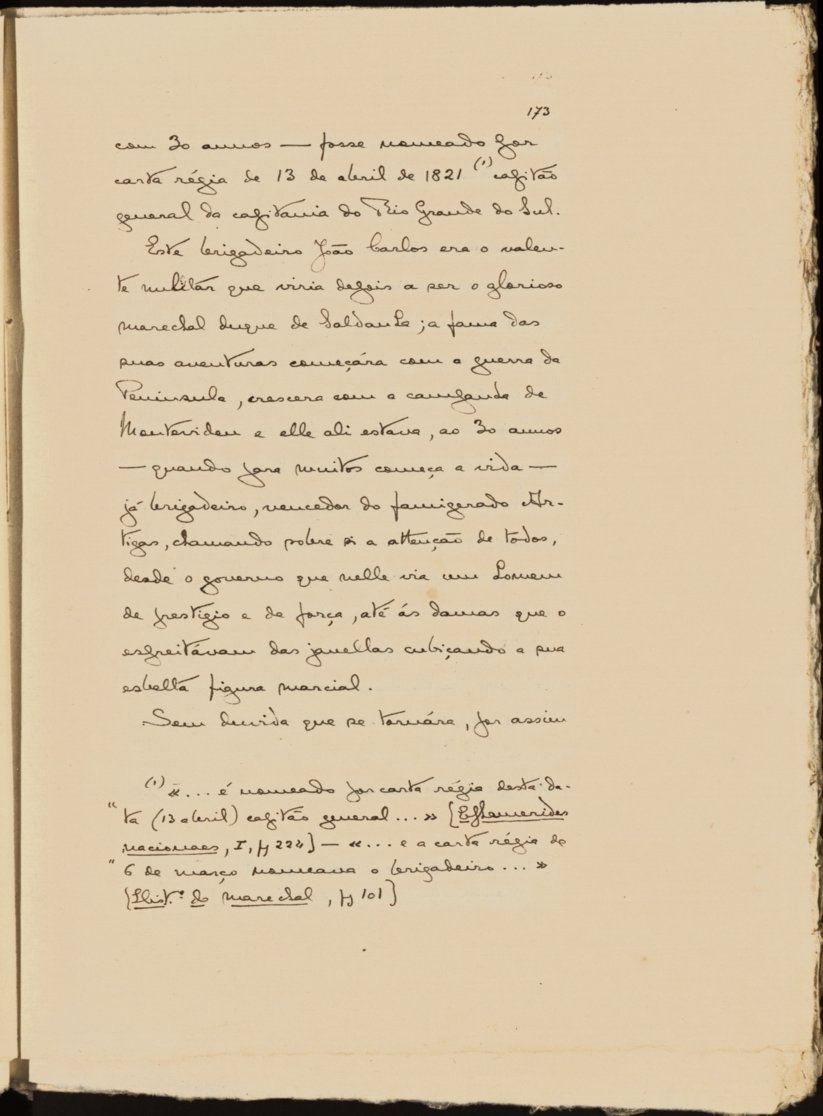 173
com 30 annos — fosse nomeado por
carta régia de 13 de abril de 1821 (1) capitão
general da capitania do Rio Grande do Sul.
Este brigadeiro João Carlos era o valen-
te militar que viria depois a ser o glorioso
marechal duque de Saldanha; a fama das
suas aventuras começára com a guerra da
Peninsula, crescera com a campanha de
Montevideu e elle ali estava, ao 30 annos
— quando para muitos começa a vida —
já brigadeiro, vencedor do famigerado Ar-
tigas, chamando sobre si a attenção de todos,
desde o governo que nelle via um homem
de prestigio e de força, até ás damas que o
espreitávam das janellas cubiçando a sua
esbelta figura marcial.
Sem duvida que se tornára, por assim
(1) «... é nomeado por carta régia desta da-
"ta (13 abril) capitão general...» [Ephemerides
nacionaes, I, p 224] — «... e a carta régia de
"6 de março nomeava o brigadeiro...»
[Hist.ª do marechal, p 101]